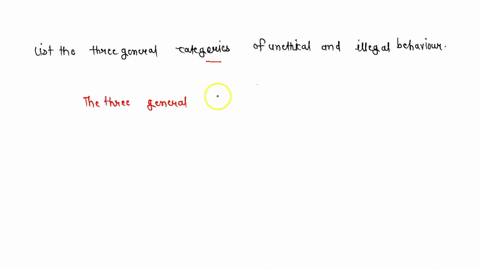 List the three general categories of unethical and illegal behaviour.
The three general